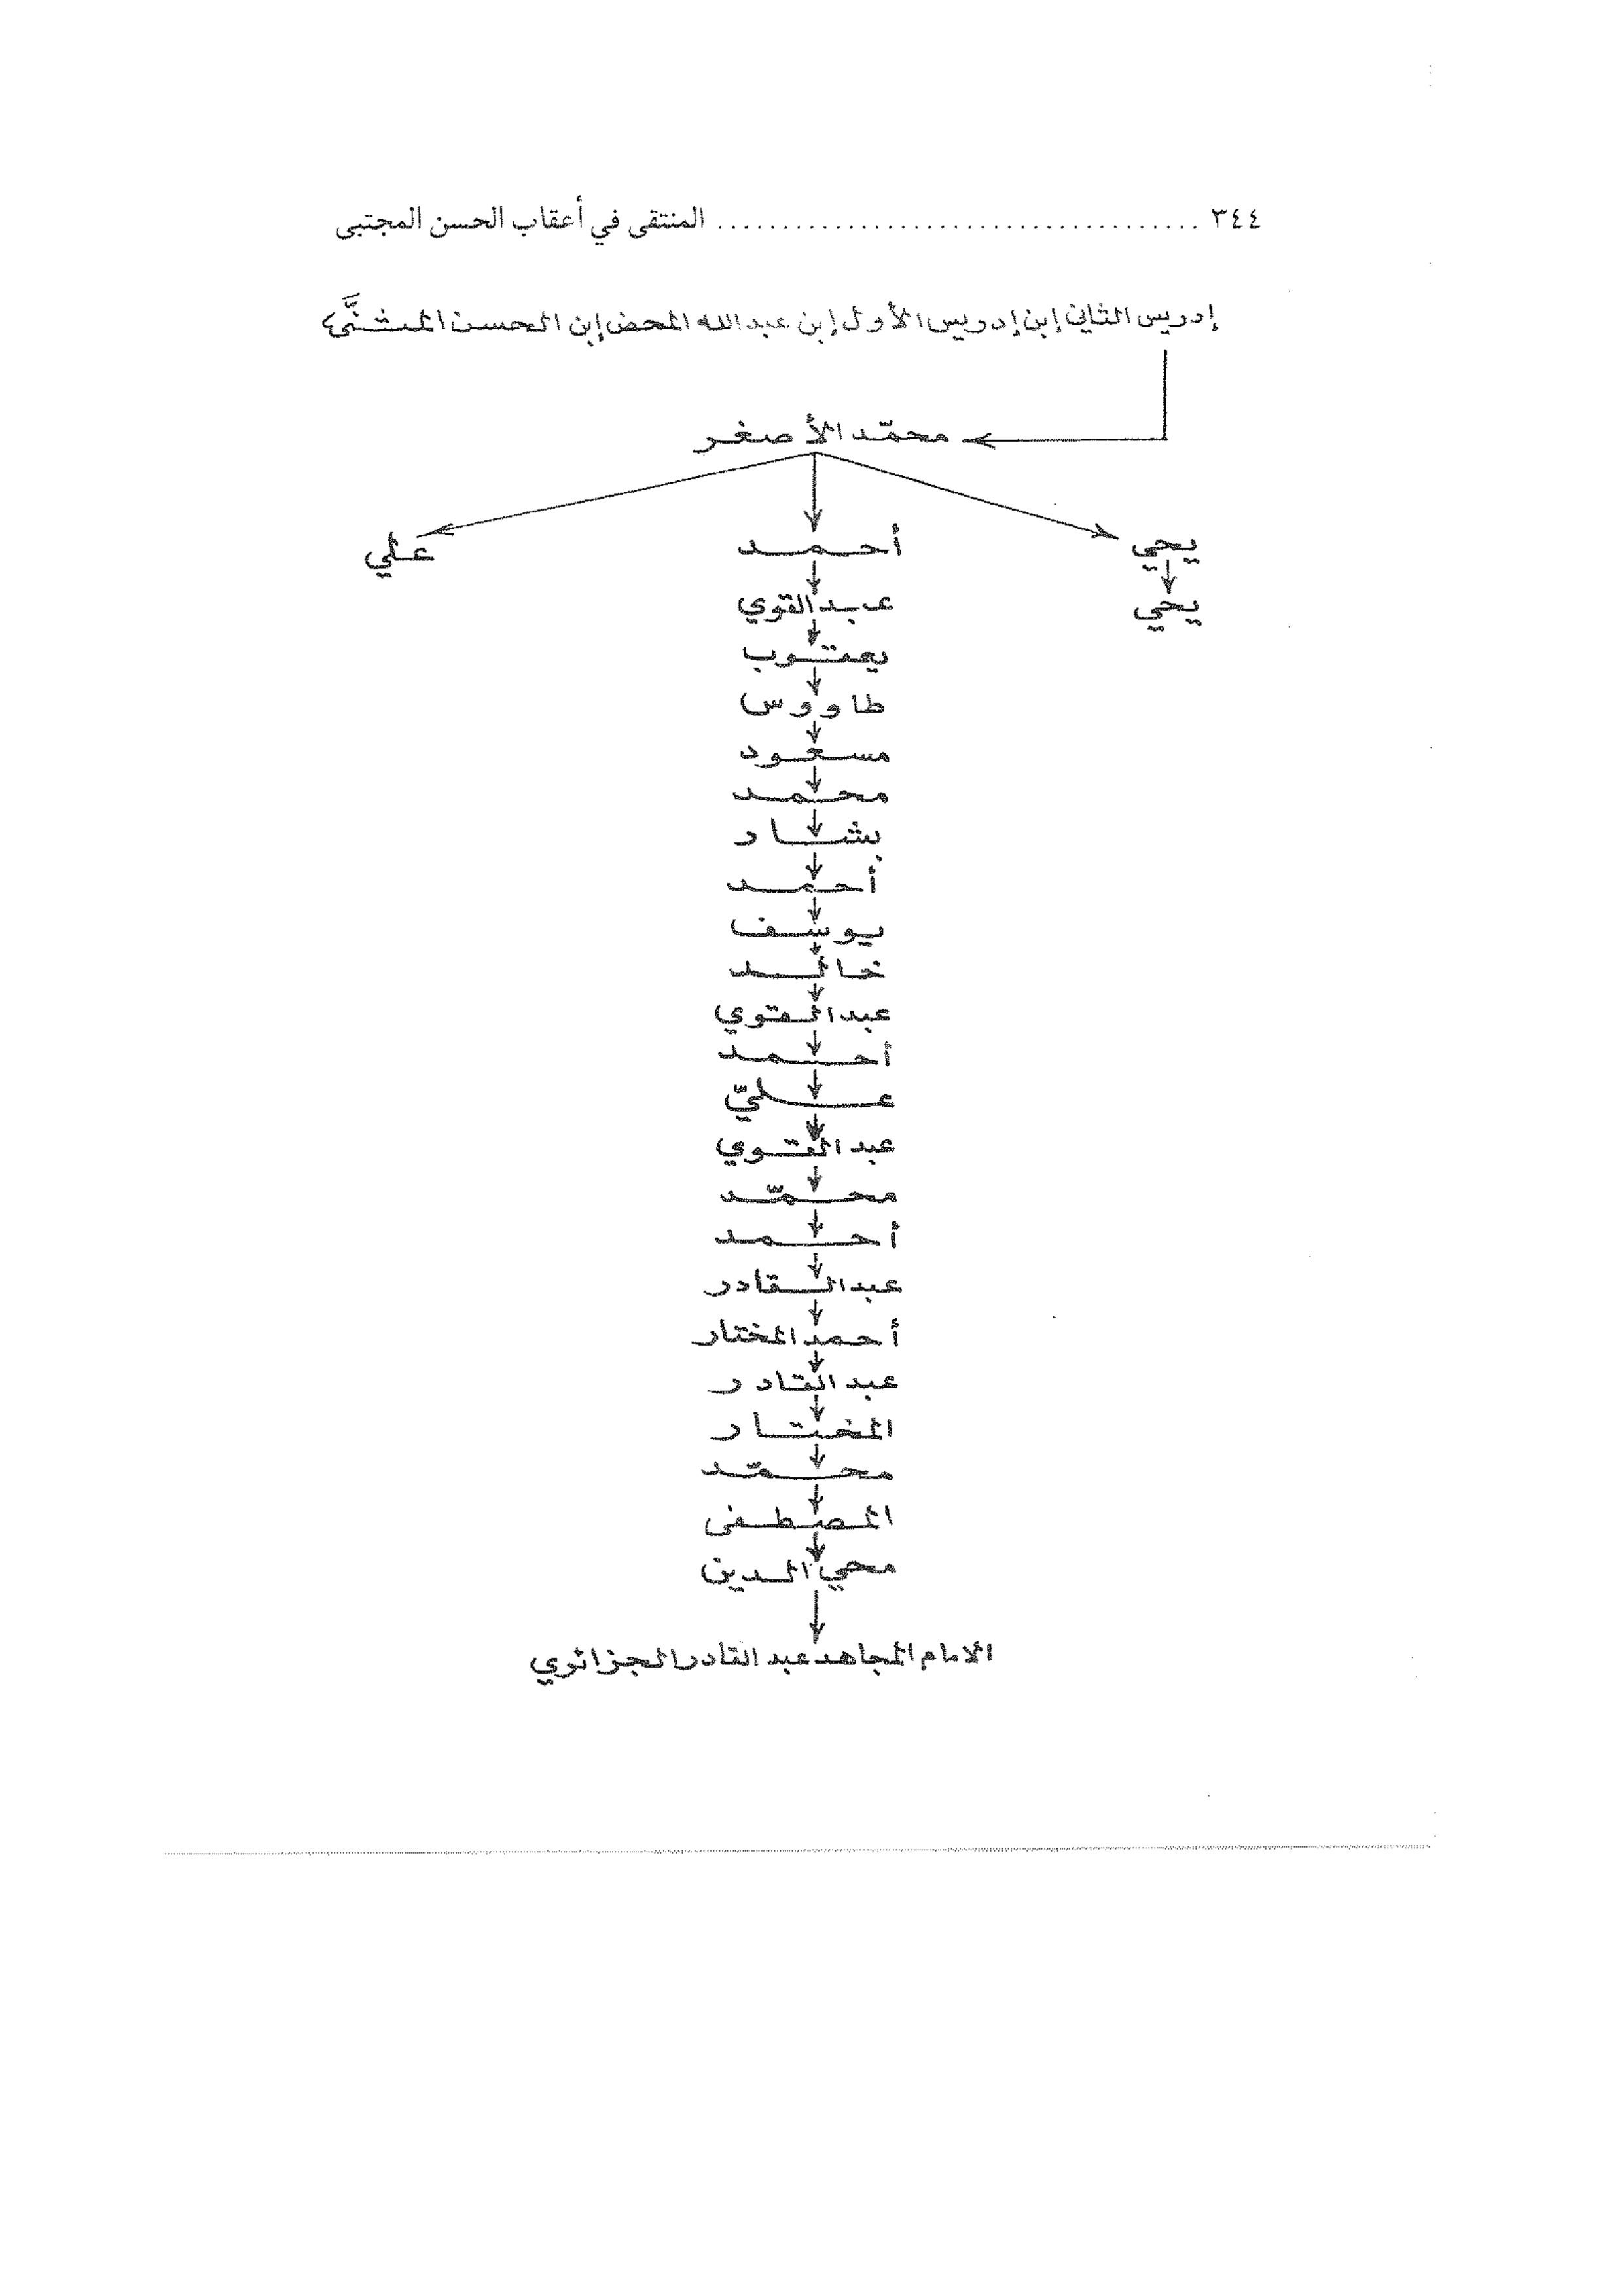 ٣٤٤ .................................... المنتقى في أعقاب الحسن المجتبى
إدريس الثاني إبن إدريس الأول إبن عبد الله المحض إبن الحسن المثنَّى
محمّد الأصغر
يحيي أحمد علي
يحيي عبد القوي
يعقوب
طاووس
مسعود
محمد
بشار
أحمد
يوسف
خالد
عبد القوي
أحمد
عليّ
عبد القوي
محمّد
أحمد
عبد القادر
أحمد المختار
عبد القادر
المختار
محمّد
المصطفى
محي الدين
الامام المجاهد عبد القادر الجزائري